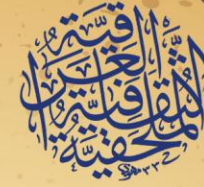 الملحقية
الثقافية
العراقية